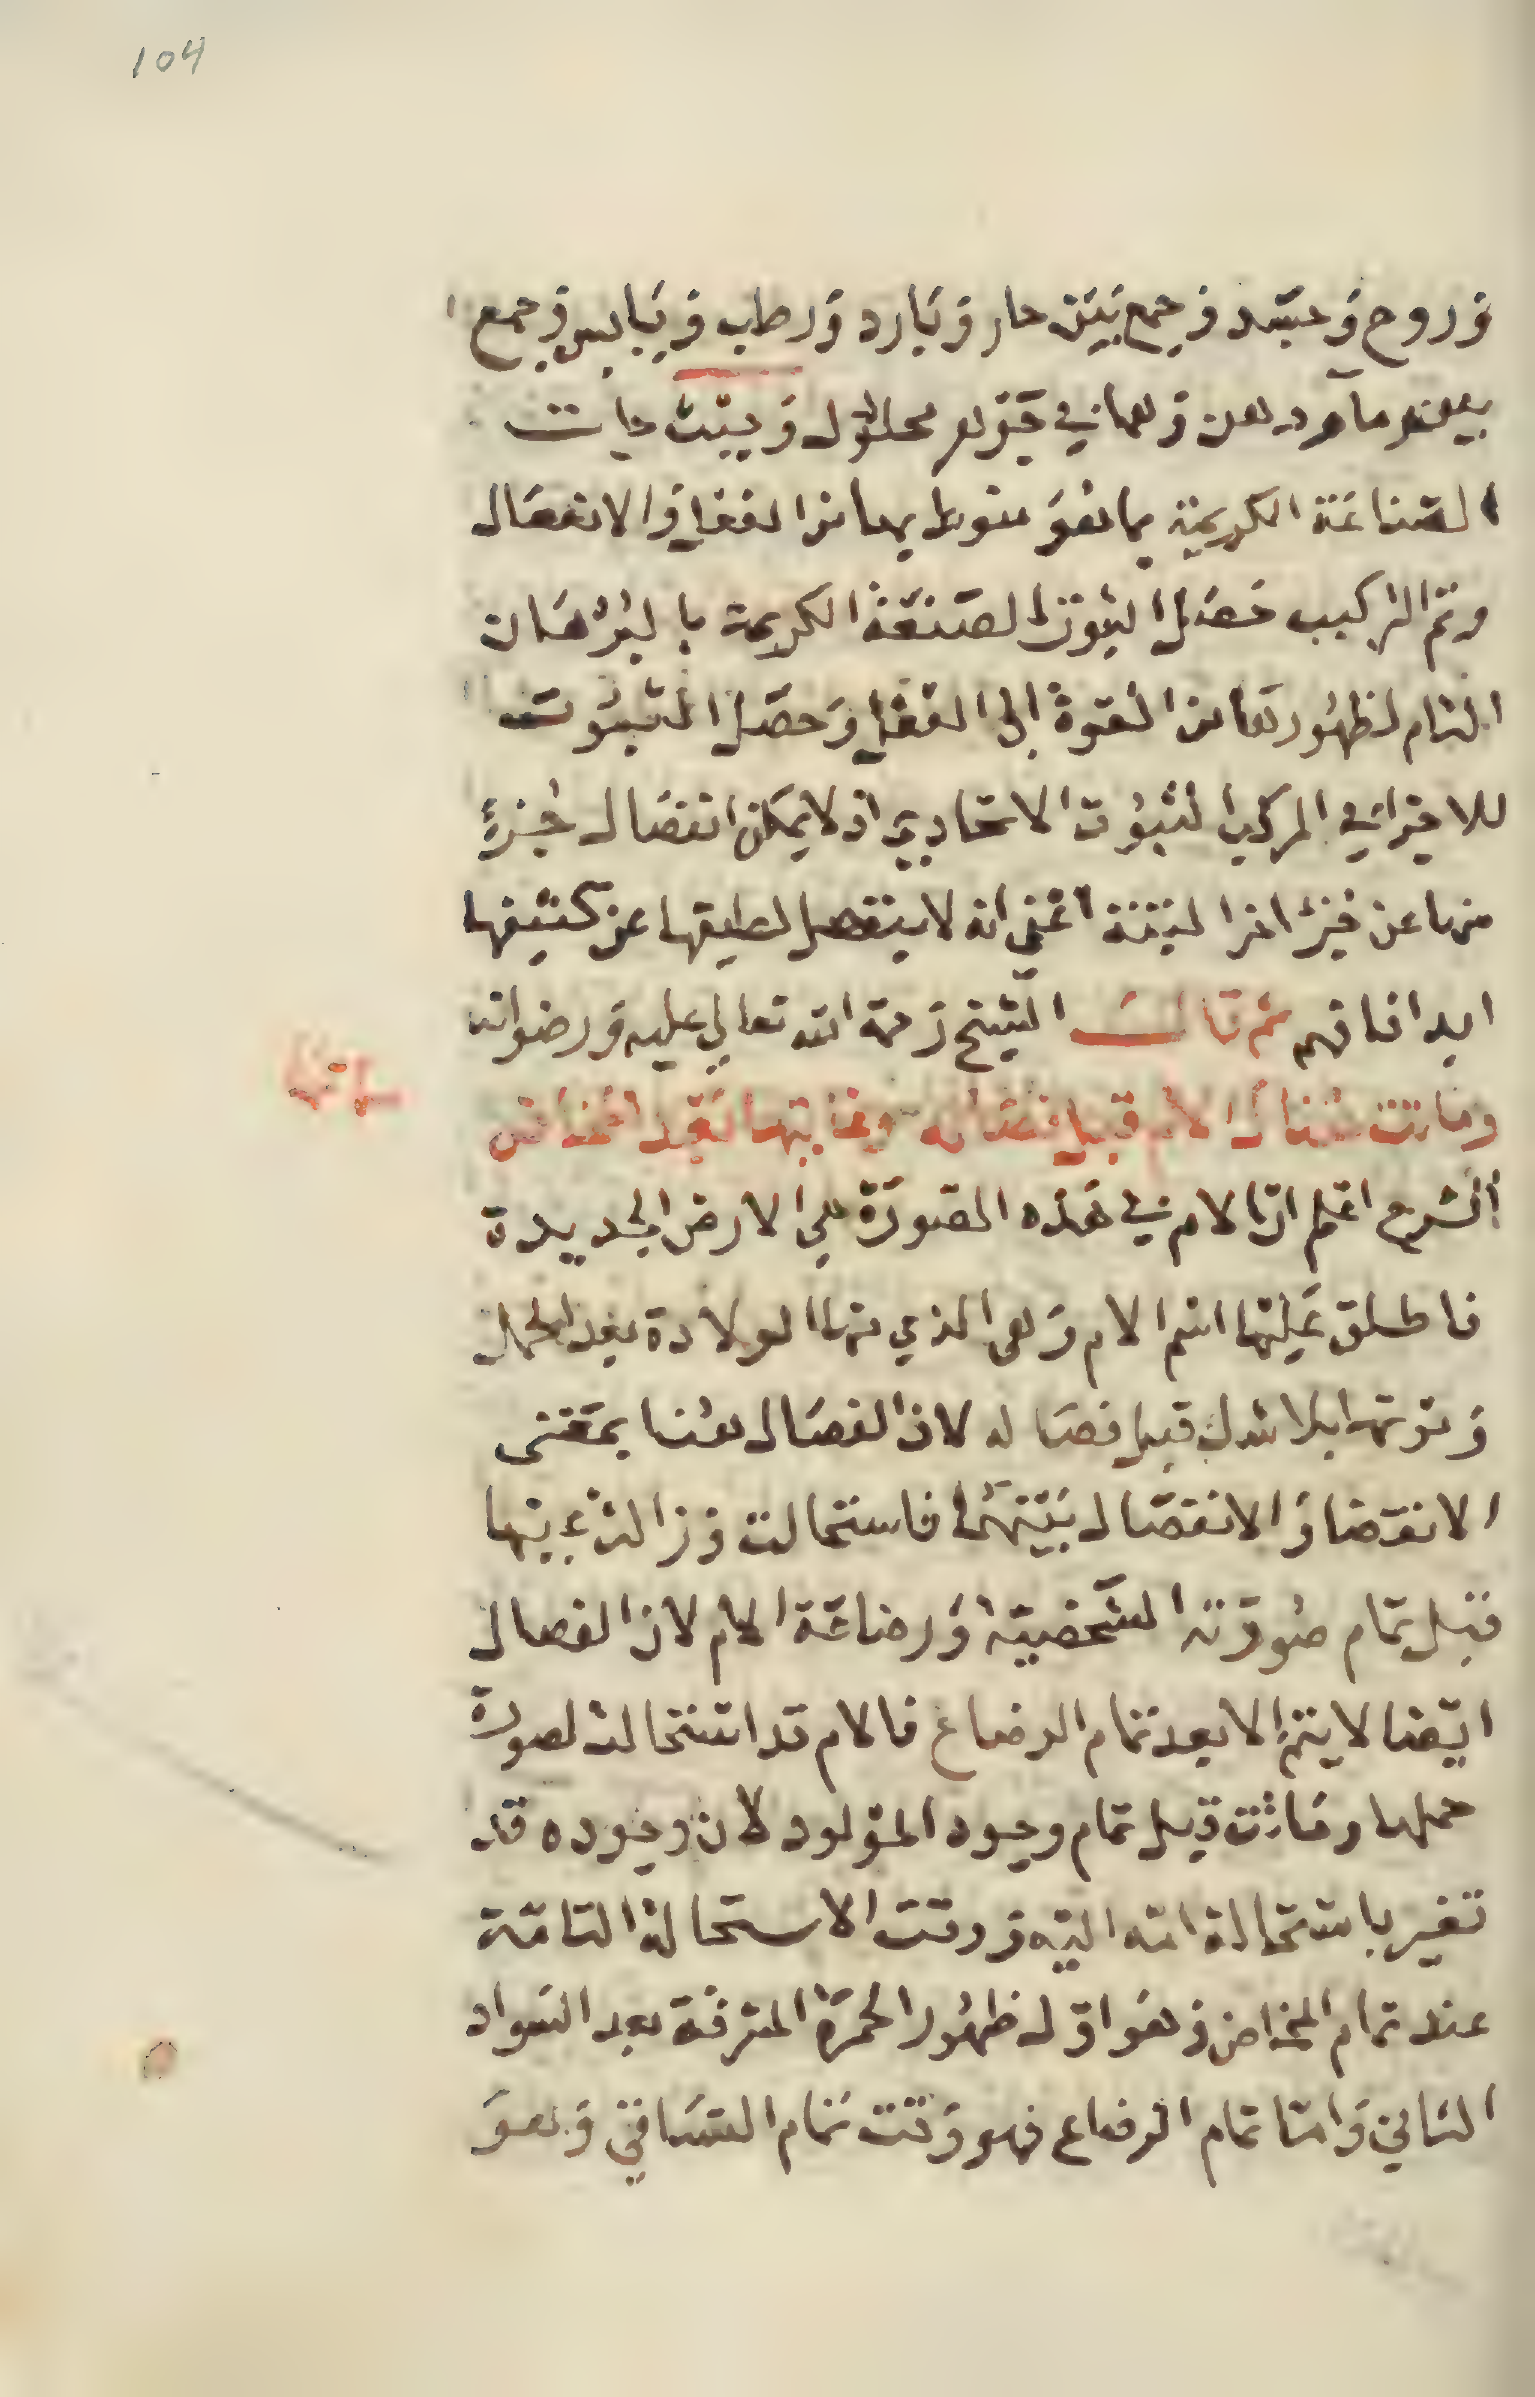 104
وروح وجسد وجمع بين حار وبارد ورطب ويابس وجمع
بينهم ماء ودهن وهما في جوهر محلول وبينت حيات
الصناعة الكريمة بما هو منوط بها من الفعل والانفعال
وتم التركيب حصل الثبوت للصنعة الكريمة بالبرهان
التام لظهورها من القوة إلى الفعل وحصل الثبوت
للاجزا في المركب الثبوت الاتحادي اذ لا يمكن انفصال جزء
منها عن جزء اخر البتة اعني انه لا ينفصل لطيفها عن كثيفها
ابدا فافهم ثم قال الشيخ رحمة الله تعالي عليه ورضوانه
وماتت هناك الام قبل فصاله وغابتها بعد المخاض
الشرح اعلم ان الام في هذه الصورة هي الارض الجديدة
فاطلق عليها اسم الام وهي الذي منها الولادة بعد الحمل
وموتها بلا شك قبل فصاله لان الفصال هنا بمعنى
الانقضا والانفصال بينهما فاستحالت وزالت عينها
قبل تمام صورته الشخصية ورضاعة الام لان الفصال
ايضا لا يتم الا بعد تمام الرضاع فالام قد استحالت لصورة
حملها وماتت قبل تمام وجود المولود لان وجوده قد
تغير باستحالة امه اليه ووقت الاستحالة التامة
عند تمام المخاض وهو اول ظهور الحمرة المشرقة بعد السواد
الثاني واما تمام الرضاع فهو وقت تمام التساقي وهو